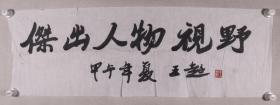 傑出人物視野
甲午年夏 王超